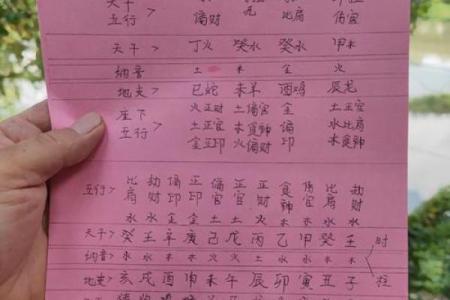 天干 兀 比肩 伤官
五行> 偏财
天干> 丁火 癸水 癸水 甲木
纳音 土 木 金 火
地支> 巳蛇 未羊 酉鸡 辰龙
座下 火正财 土偏官 金 土正官
五行 土正官 木食神 偏 水比肩
金正印 火偏财 印 木食神
五行> 比肩 劫财 偏印 正印 偏官 正官 正财 食神 伤官 比肩 劫财
水 水 金 金 土 土 火 木 木 水 水
天干> 癸 壬 辛 庚 己 戊 丙 乙 甲 癸 壬 时
纳音> 水 水 木 木 火 火 土 水 水 木 木
地支> 亥 戌 酉 申 未 午 辰 卯 寅 丑 子 柱